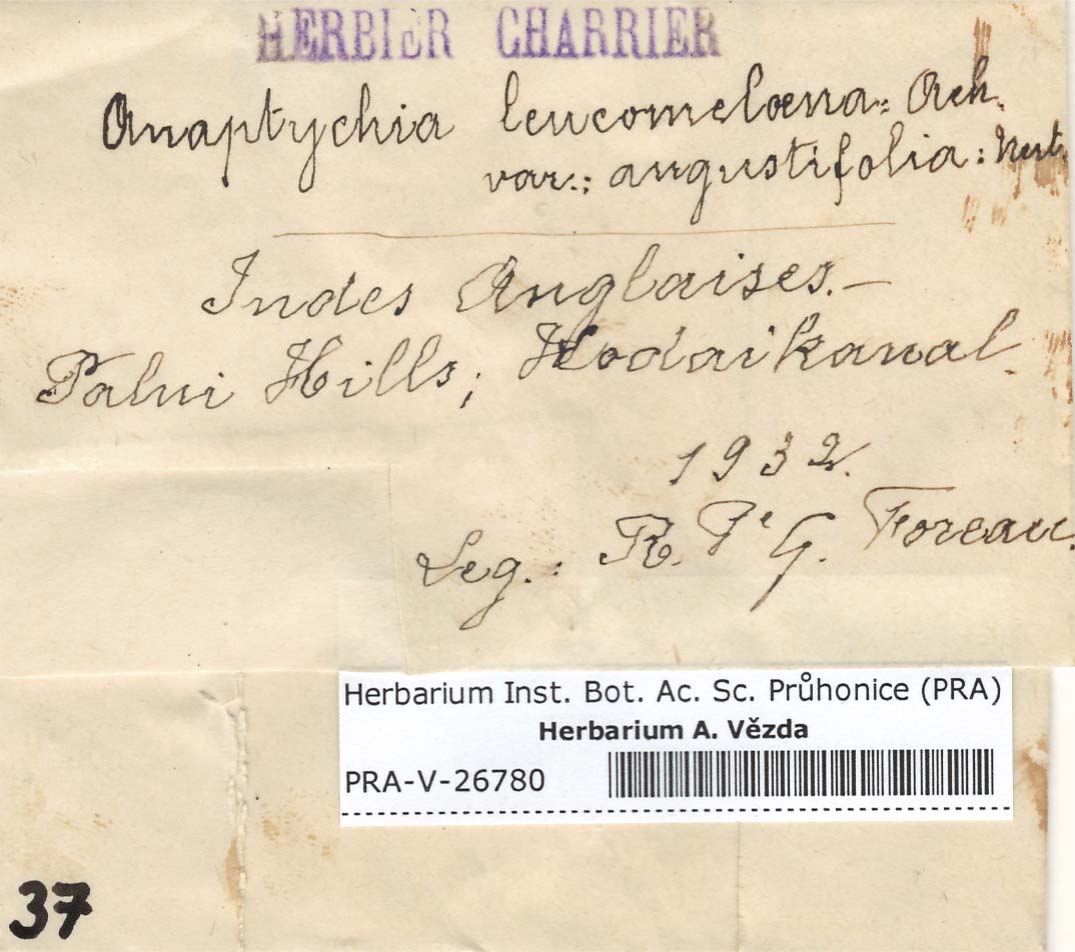 HERBIER CHARRIER
Anaptychia leucomelæna: Ach.
var.: angustifolia:
Indes Anglaises.—
Palni Hills; Kodaikanal.
1932.
Leg.: R. P. G. Foreau.
Herbarium Inst. Bot. Ac. Sc. Průhonice (PRA)
Herbarium A. Vězda
PRA-V-26780
37